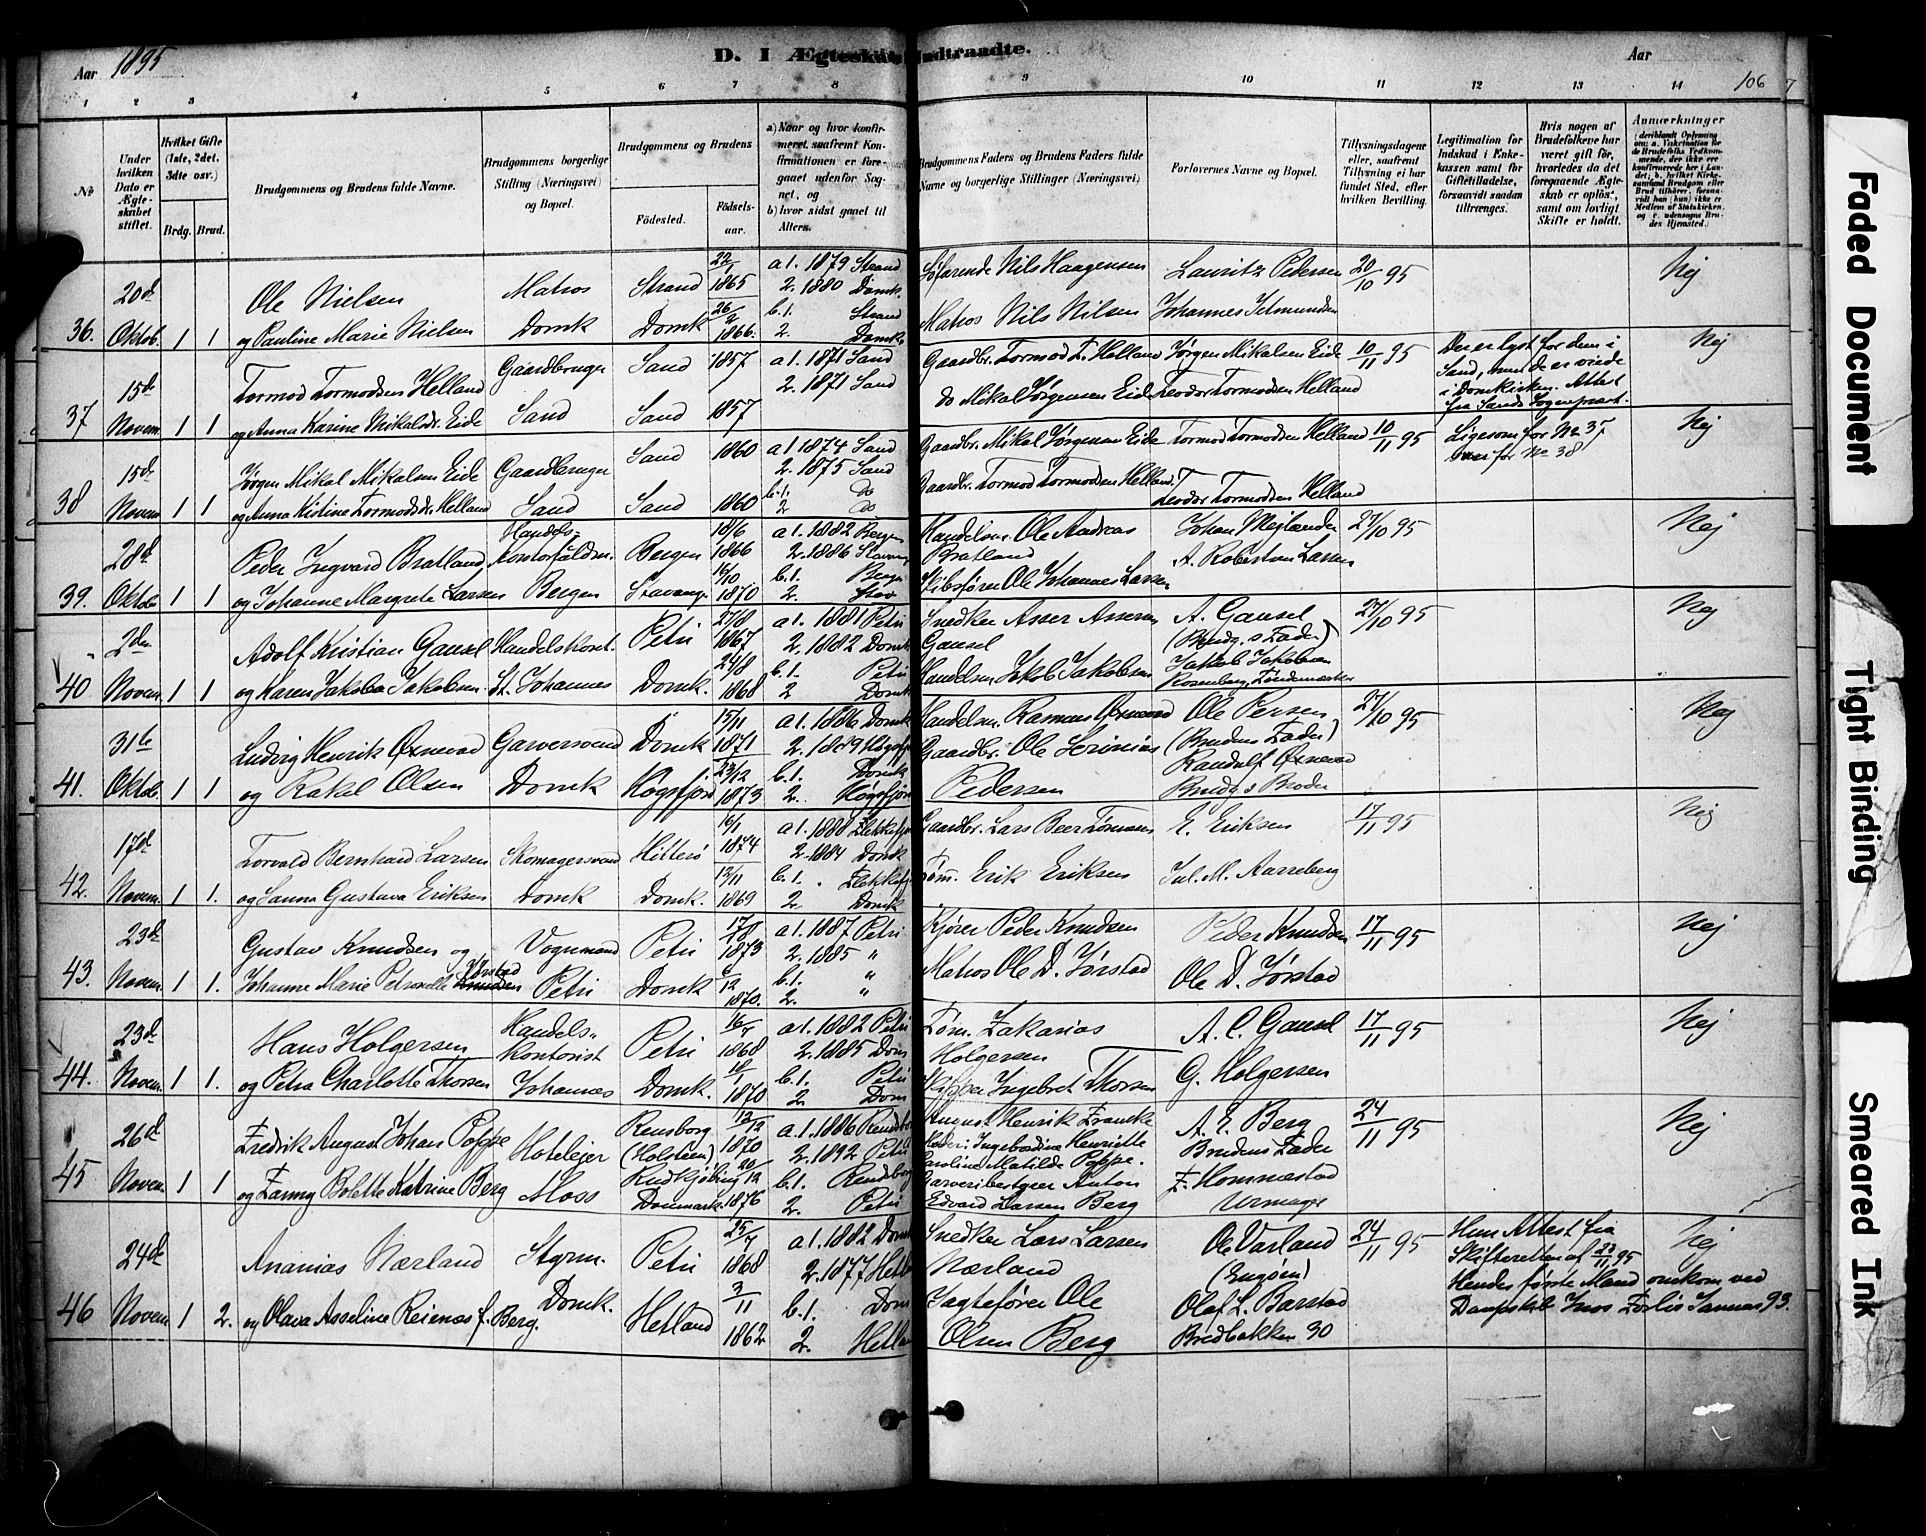 Aar 1895
D. I Ægteskab Indtraadte.
Aar
106
1 2 3 4 5 6 7 8 9 10 11 12 13 14
No
Under hvilken Dato er Ægteskabet stiftet.
Hvilket Gifte (1ste, 2det, 3dte osv.)
Brdg. Brud.
Brudgommens og Brudens fulde Navne.
Brudgommens borgerlige Stilling (Næringsvei) og Bopæl.
Brudgommens og Brudens
Fødested.
Fødselsaar.
a) Naar og hvor konfirmeret, saafremt Konfirmationen er foregaaet udenfor Sognet, og
b) hvor sidst gaaet til Alters.
Brudgommens Faders og Brudens Faders fulde Navne og borgerlige Stillinger (Næringsvei)
Forlovernes Navne og Bopæl.
Tillysningsdagene eller, saafremt Tillysning ei har fundet Sted, efter hvilken Bevilling.
Legitimation for Indskud i Enkekassen samt for Giftetilladelse, forsaavidt saadan tiltrænges.
Hvis nogen af Brudefolkene har været gift før, hvorledes da det foregaaende Ægteskab er opløst, samt om lovligt Skifte er holdt.
Anmærkninger
36. 20d Oktob. 1 1
Ole Nielsen
og Pauline Marie Nielsen
Matros
Domk
Strand 22/1 1865
Domk 26/2 1866.
a 1. 1879 Strand
2. 1880 Domk.
b. 1. Strand
2. Domk
Søfarende Nils Haagensen
Matros Nils Nilsen
Lauritz Pedersen
Johannes
20/10 95
Nej
37 15d Novem 1 1
Tormod Tormodsen Helland
og Anna Karine Mikalsdr. Eide
Gaardbruger
Sand
Sand 1857
Sand 1857
a 1. 1871 Sand
2. 1871 Sand
Gaardbr. Tormod T. Helland
do Mikal Jørgensen Eide
Jørgen Mikalsen Eide
Teodor Tormodsen Helland
10/11 95
Der er lyst for dem i
Sand, men de er viede
i Domkirken. Attest
fra Sands Sogneprest.
Nej
38 15d Novem 1 1
Jørgen Mikal Mikalsen Eide
og Anna Kistine Tormodsdr. Helland
Gaardbruger
Sand
Sand 1860
Sand 1860
a 1 1874 Sand
2. 1875 Sand
b. 1. do
2 do
Gaardbr. Mikal Jørgensen Eide
Gaardbr. Tormod Tormodsen Helland.
Tormod Tormodsen Helland
Teodor Tormodsen Helland
10/11 95
Ligesom for No 37
for No 38
Nej
39. 28d Oktob 1 1
Peder Ingvard Bratland
og Johanne Margrete Larsen
Handels-
Bergen
Bergen 18/6 1866
Stavange 16/10 1870
a 1. 1882 Bergen
2. 1886 Stavang
b. 1. Bergn
2. Stav
Handelsm. Ole Andreas
Bratland
Skibsfører Ole Johannes Larsen
Johan Mejlænder
A. Robertson Larsen
27/10 95
Nej
40 2den Novem. 1 1
Adolf Kristian Gausel
og Karen Jakoba Jakobsen.
Handelskont.
St. Johannes
Petri 27/8 1867
Domk. 24/8 1868
a 1. 1881 Petri
2. 1882 Domk
b. 1. Petri
2 Domk
Snedker Asser Assersen
Gausel
Handelsm Jakob Jakobsen
A. Gausel
(Brudg.s Fader)
Jakob Jakobsen
Rosenberg,
27/10 95
Nej
41. 31te Oktob. 1 1
Ludvig Henrik Øxnevad
og Rakel Olsen
Garversvend
Domk
Domk 15/11 1871
Høgsfjord 23/12 1873
a 1. 1886 Domk
2. 1889 Høgsfj
b. 1. Domk
2. Høgsfjord
Handelsm. Rasmus Øxnevad
Gaardbr. Ole Serinius
Pedersen
Ole Persen
(Brudens Fader)
Randulf Øxnevad
Brudg.s Broder
27/10 95
Nej
42. 17d Novem. 1 1.
Torvald Bernhard Larsen
og Sanna Gustava Eriksen
Skomagersvend
Domk
Hitterø 6/1 1874
Domk. 12/11 1869
a 1. 1888 Flekkefj
2. 1884 Domk
b. 1. Flekkefj
2. Domk
Gaardbr. Lars Beer Tønnesen
Tøm. Erik Eriksen
E. Eriksen
Jul. M. Aarreberg
17/11 95
Nej
43. 23d Novem. 1 1.
Gustav Knudsen og
Johanne Marie Petronelle Jørstad
Vognmand
Petri
Petri 17/8 1873
Domk 6/12 1870.
a 1. 1887 Petri
2. 1885 "
b. 1. "
2. "
Kjører Peder Knudsen
Matros Ole D. Jørstad
Peder Knudsen
Ole D. Jørstad
17/11 95
Nej
44. 23d Novem. 1 1.
Hans Holgersen
og Petra Charlotte Thorsen
Handels-
kontorist
Johannes
Petri 16/7 1868
Domk. 18/1 1870
a 1. 1882 Petri
2. 1885 Dom
b. 1. Petri
2 Dom
Tøm. Zakarias
Holgersen
Skipper Ingebret Thorsen
A. C. Gausel
G. Holgersen
17/11 95
Nej
45 26d Novem. 1 1
Fredrik August Johan Poppe
og Fanny Bolette Katrine Berg
Hotelejer
Moss
Rensborg
(Holsteen) 13/12 1870
Rudkjøbing
Danmark. 20/12 1876
a. 1. 1886 Rendsbo
2. 1892 Petri
b. 1. Rendsborg
2. Petri
August Henrik Francke
Moder: Ingebordine Henriette
Caroline Matilde Poppe.
Garveribestyrer Anton
Edvard Larsen Berg
A. E. Berg
Brudens Fader
F. Hommestad
Urmager
24/11 95
Nej
46 24de Novem 1 2.
Ananias Nærland
og Olava Asseline Reienæs f. Berg.
Styrm.
Domk.
Petri 25/7 1868
Hetland 3/11 1862
a 1. 1882 Dom
2. 1877 Hetl
b. 1. Dom
2. Hetlan
Snedker Lars Larsen
Nærland
Jagtefører Ole
Olsen Berg
Ole Varland
(Engøen)
Olaf L. Barstad
Bredbakken 30
24/11 95
Hun Attest fra
Skifteretten af 23/11 95
Hendes første Mand omkom ved
Dampskib Forlis Januar 93.
Nej
Faded Document
Tight Binding
Smeared Ink